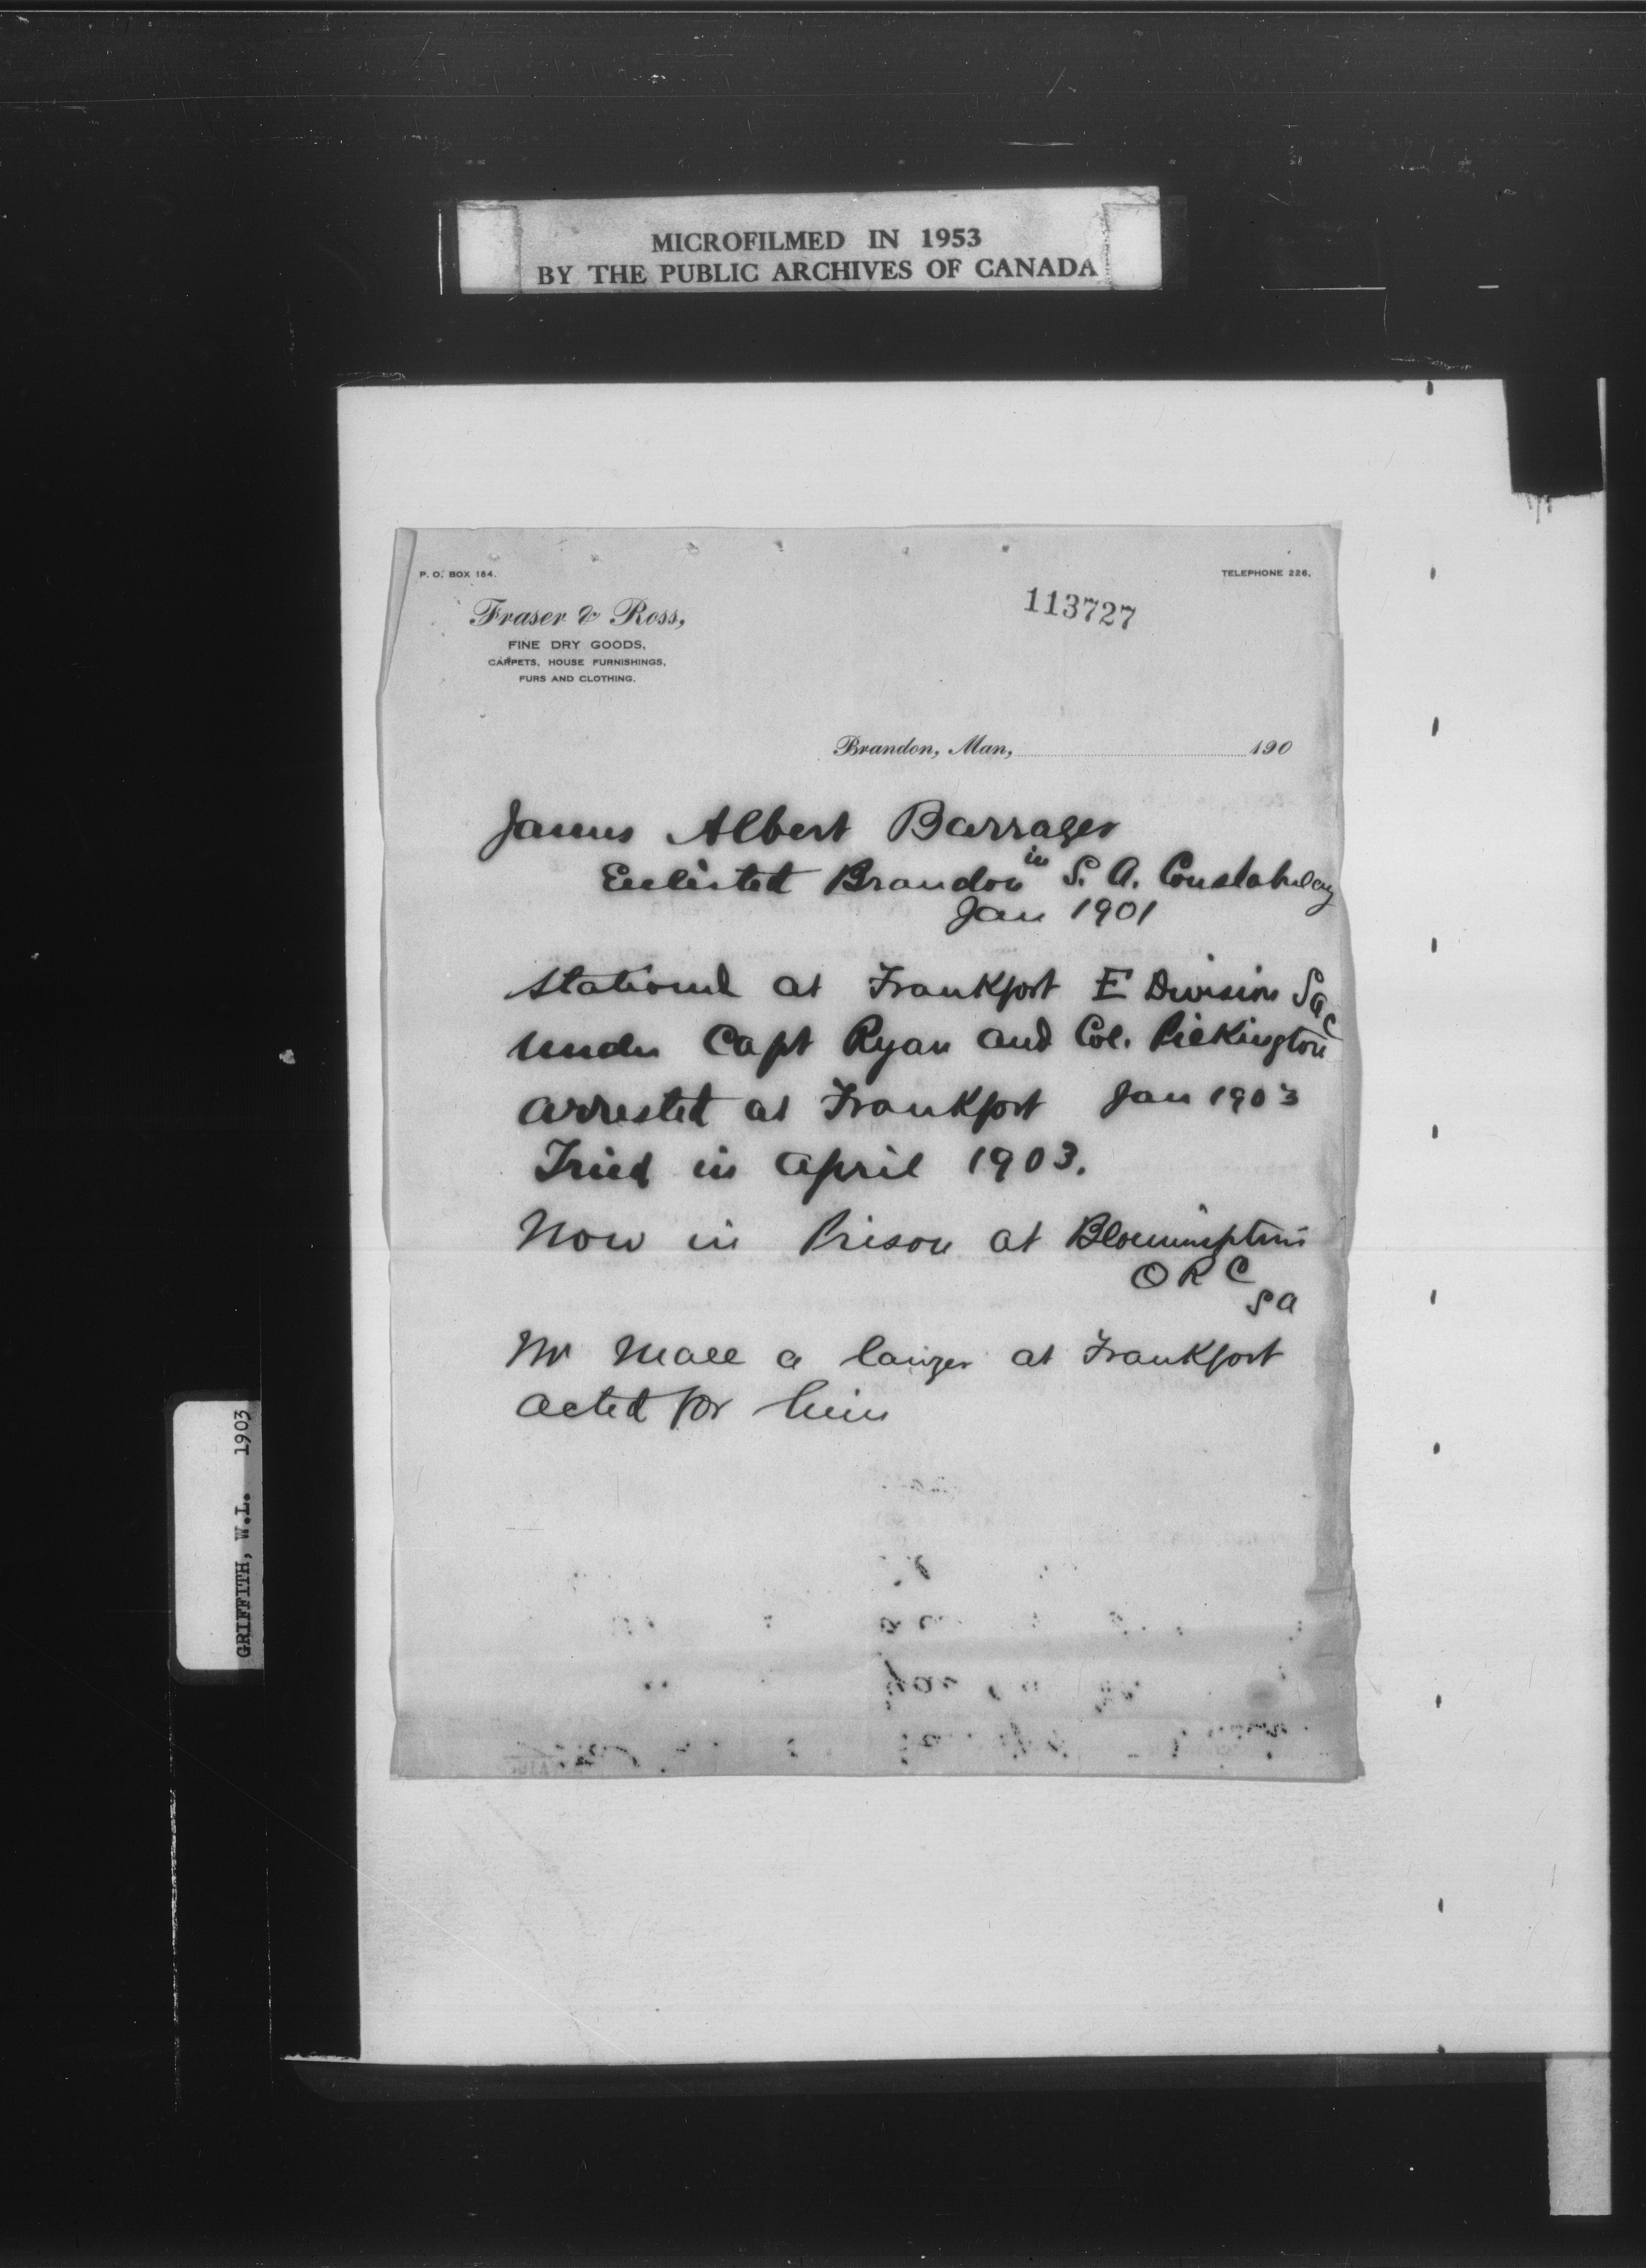 MICROFILMED IN 1953
BY THE PUBLIC ARCHIVES OF CANADA
P. O. BOX 184.
TELEPHONE 226.
113727
Fraser & Ross,
FINE DRY GOODS,
CARPETS, HOUSE FURNISHINGS,
FURS AND CLOTHING.
Brandon, Man, 190
James Albert Barrager
Enlisted Brandon in S. A. Constabulary
Jan 1901
Stationed at Frankfort E Division SAC
under Capt Ryan and Col. Pickington
arrested at Frankfort Jan 1903
Tried in April 1903.
Now in Prison at
O R C
S A
Mr a at Frankfort
acted for him
GRIFFITH, W.L. 1903